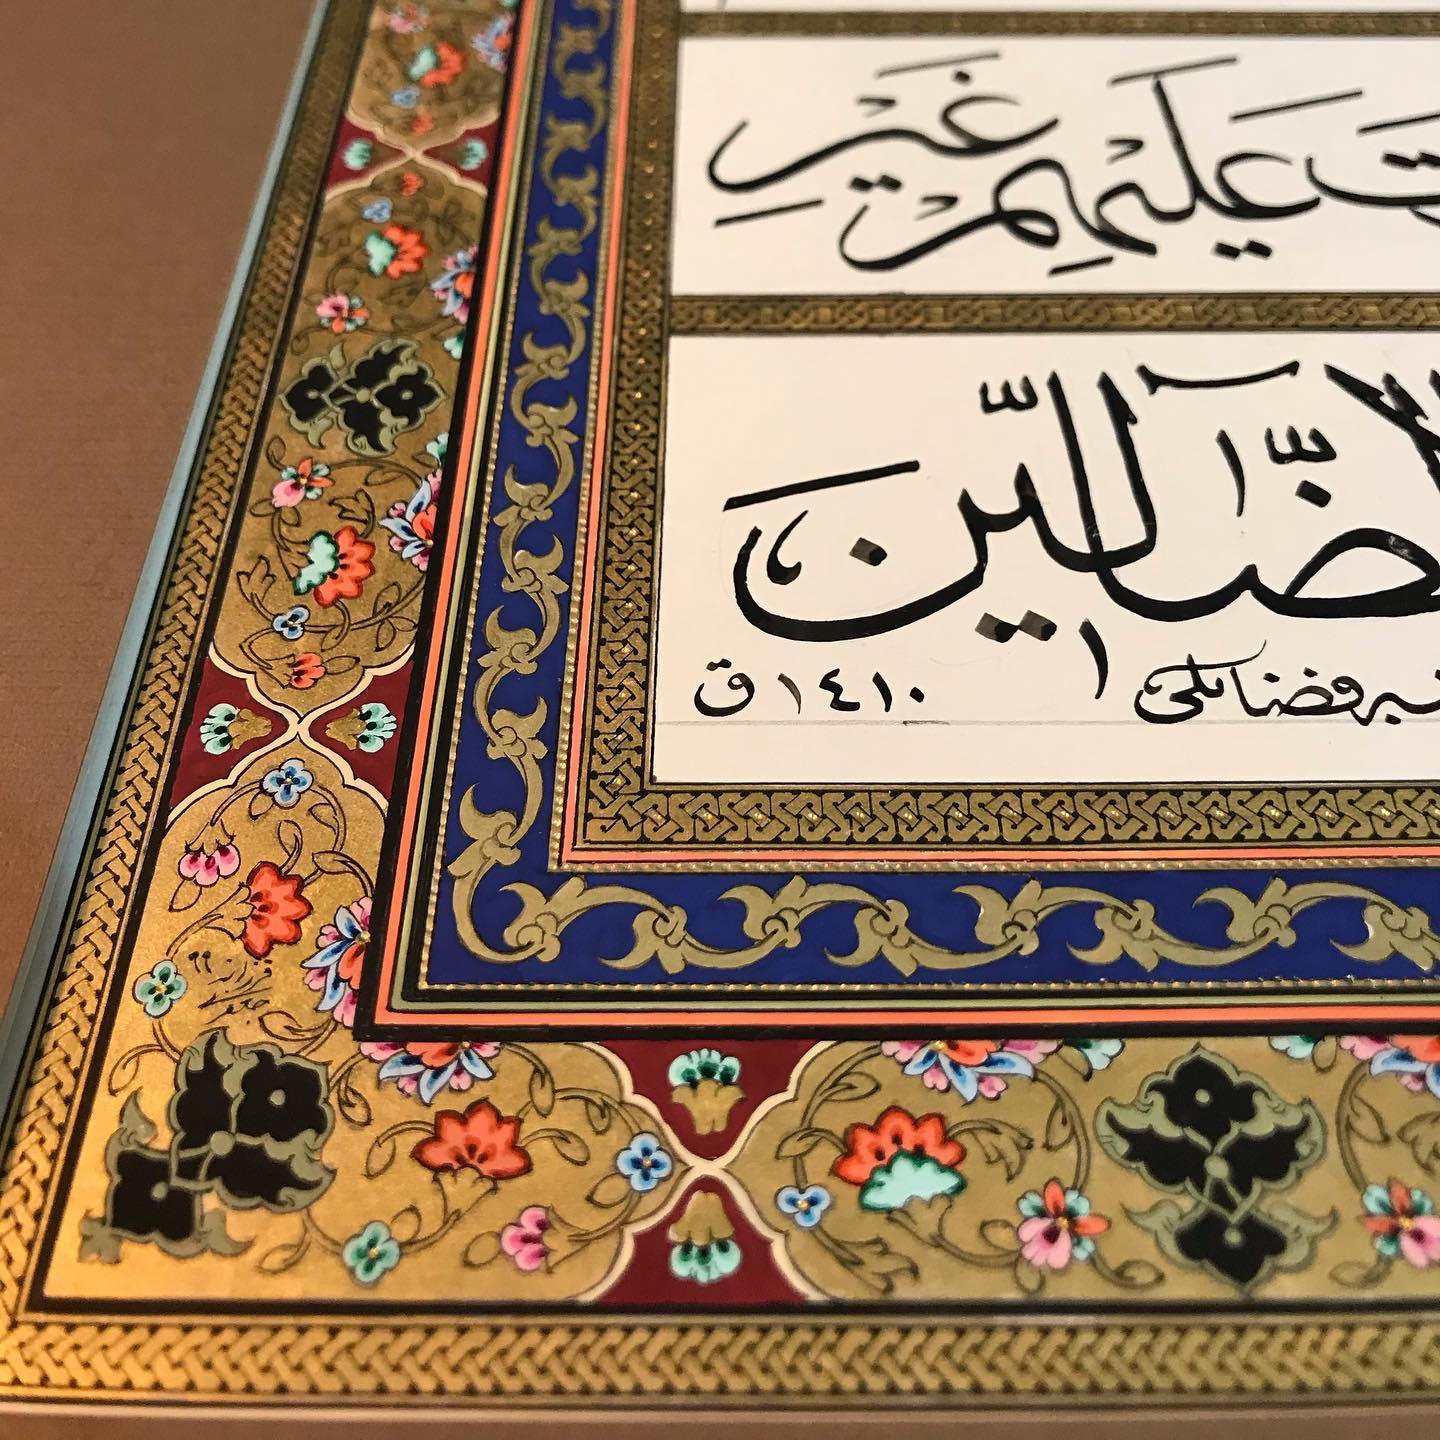 تَ عَلَيْهِمْ غَيْرِ
لَا الضَّآلِّينَ
به فضائلی ١٤١٠ ق